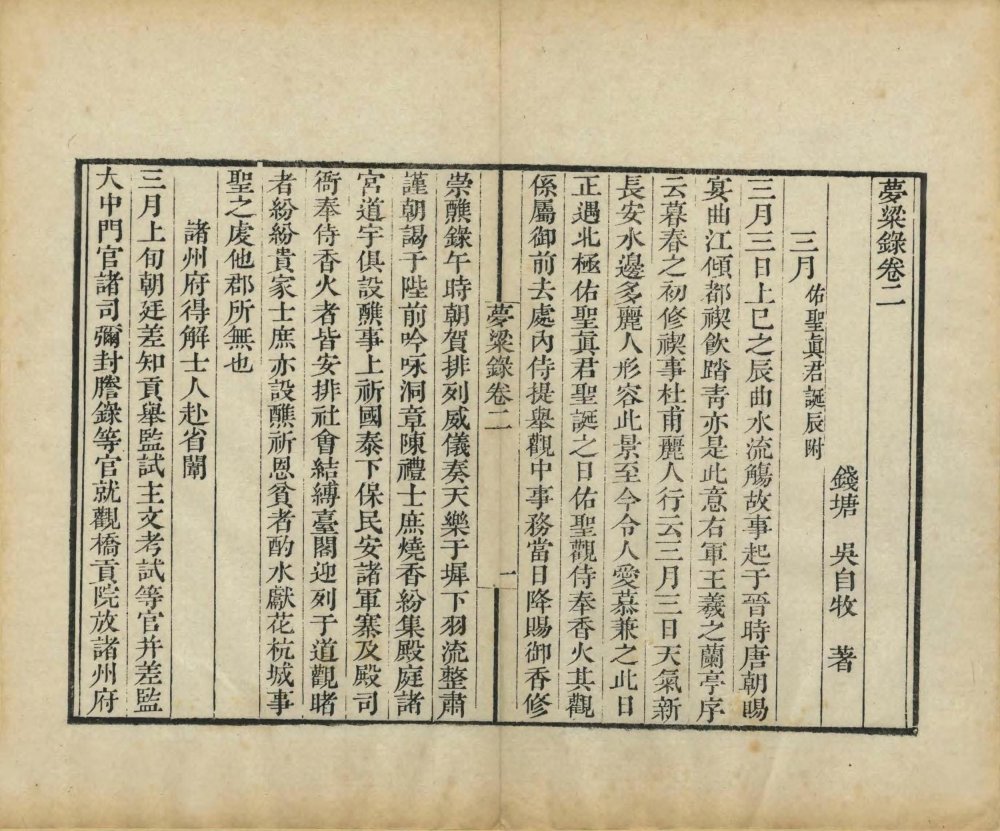 夢粱錄卷二
錢塘 吳自牧 著
三月 佑聖眞君誕辰附
三月三日上巳之辰曲水流觴故事起于晉時唐朝賜
宴曲江傾都禊飲踏靑亦是此意右軍王羲之蘭亭序
云暮春之初修禊事杜甫麗人行云三月三日天氣新
長安水邊多麗人形容此景至今令人愛慕兼之此日
正遇北極佑聖眞君聖誕之日佑聖觀侍奉香火其觀
係屬御前去處內侍提舉觀中事務當日降賜御香修
夢粱錄卷二 一
崇醮錄午時朝賀排列威儀奏天樂于墀下羽流整肅
謹朝謁于陛前吟咏洞章陳禮士庶燒香紛集殿庭諸
宮道宇俱設醮事上祈國泰下保民安諸軍寨及殿司
衙奉侍香火者皆安排社會結縛臺閣迎列于道觀睹
者紛紛貴家士庶亦設醮祈恩貧者酌水獻花杭城事
聖之虔他郡所無也
諸州府得解士人赴省闈
三月上旬朝廷差知貢舉監試主文考試等官幷差監
大中門官諸司彌封謄錄等官就觀橋貢院放諸州府